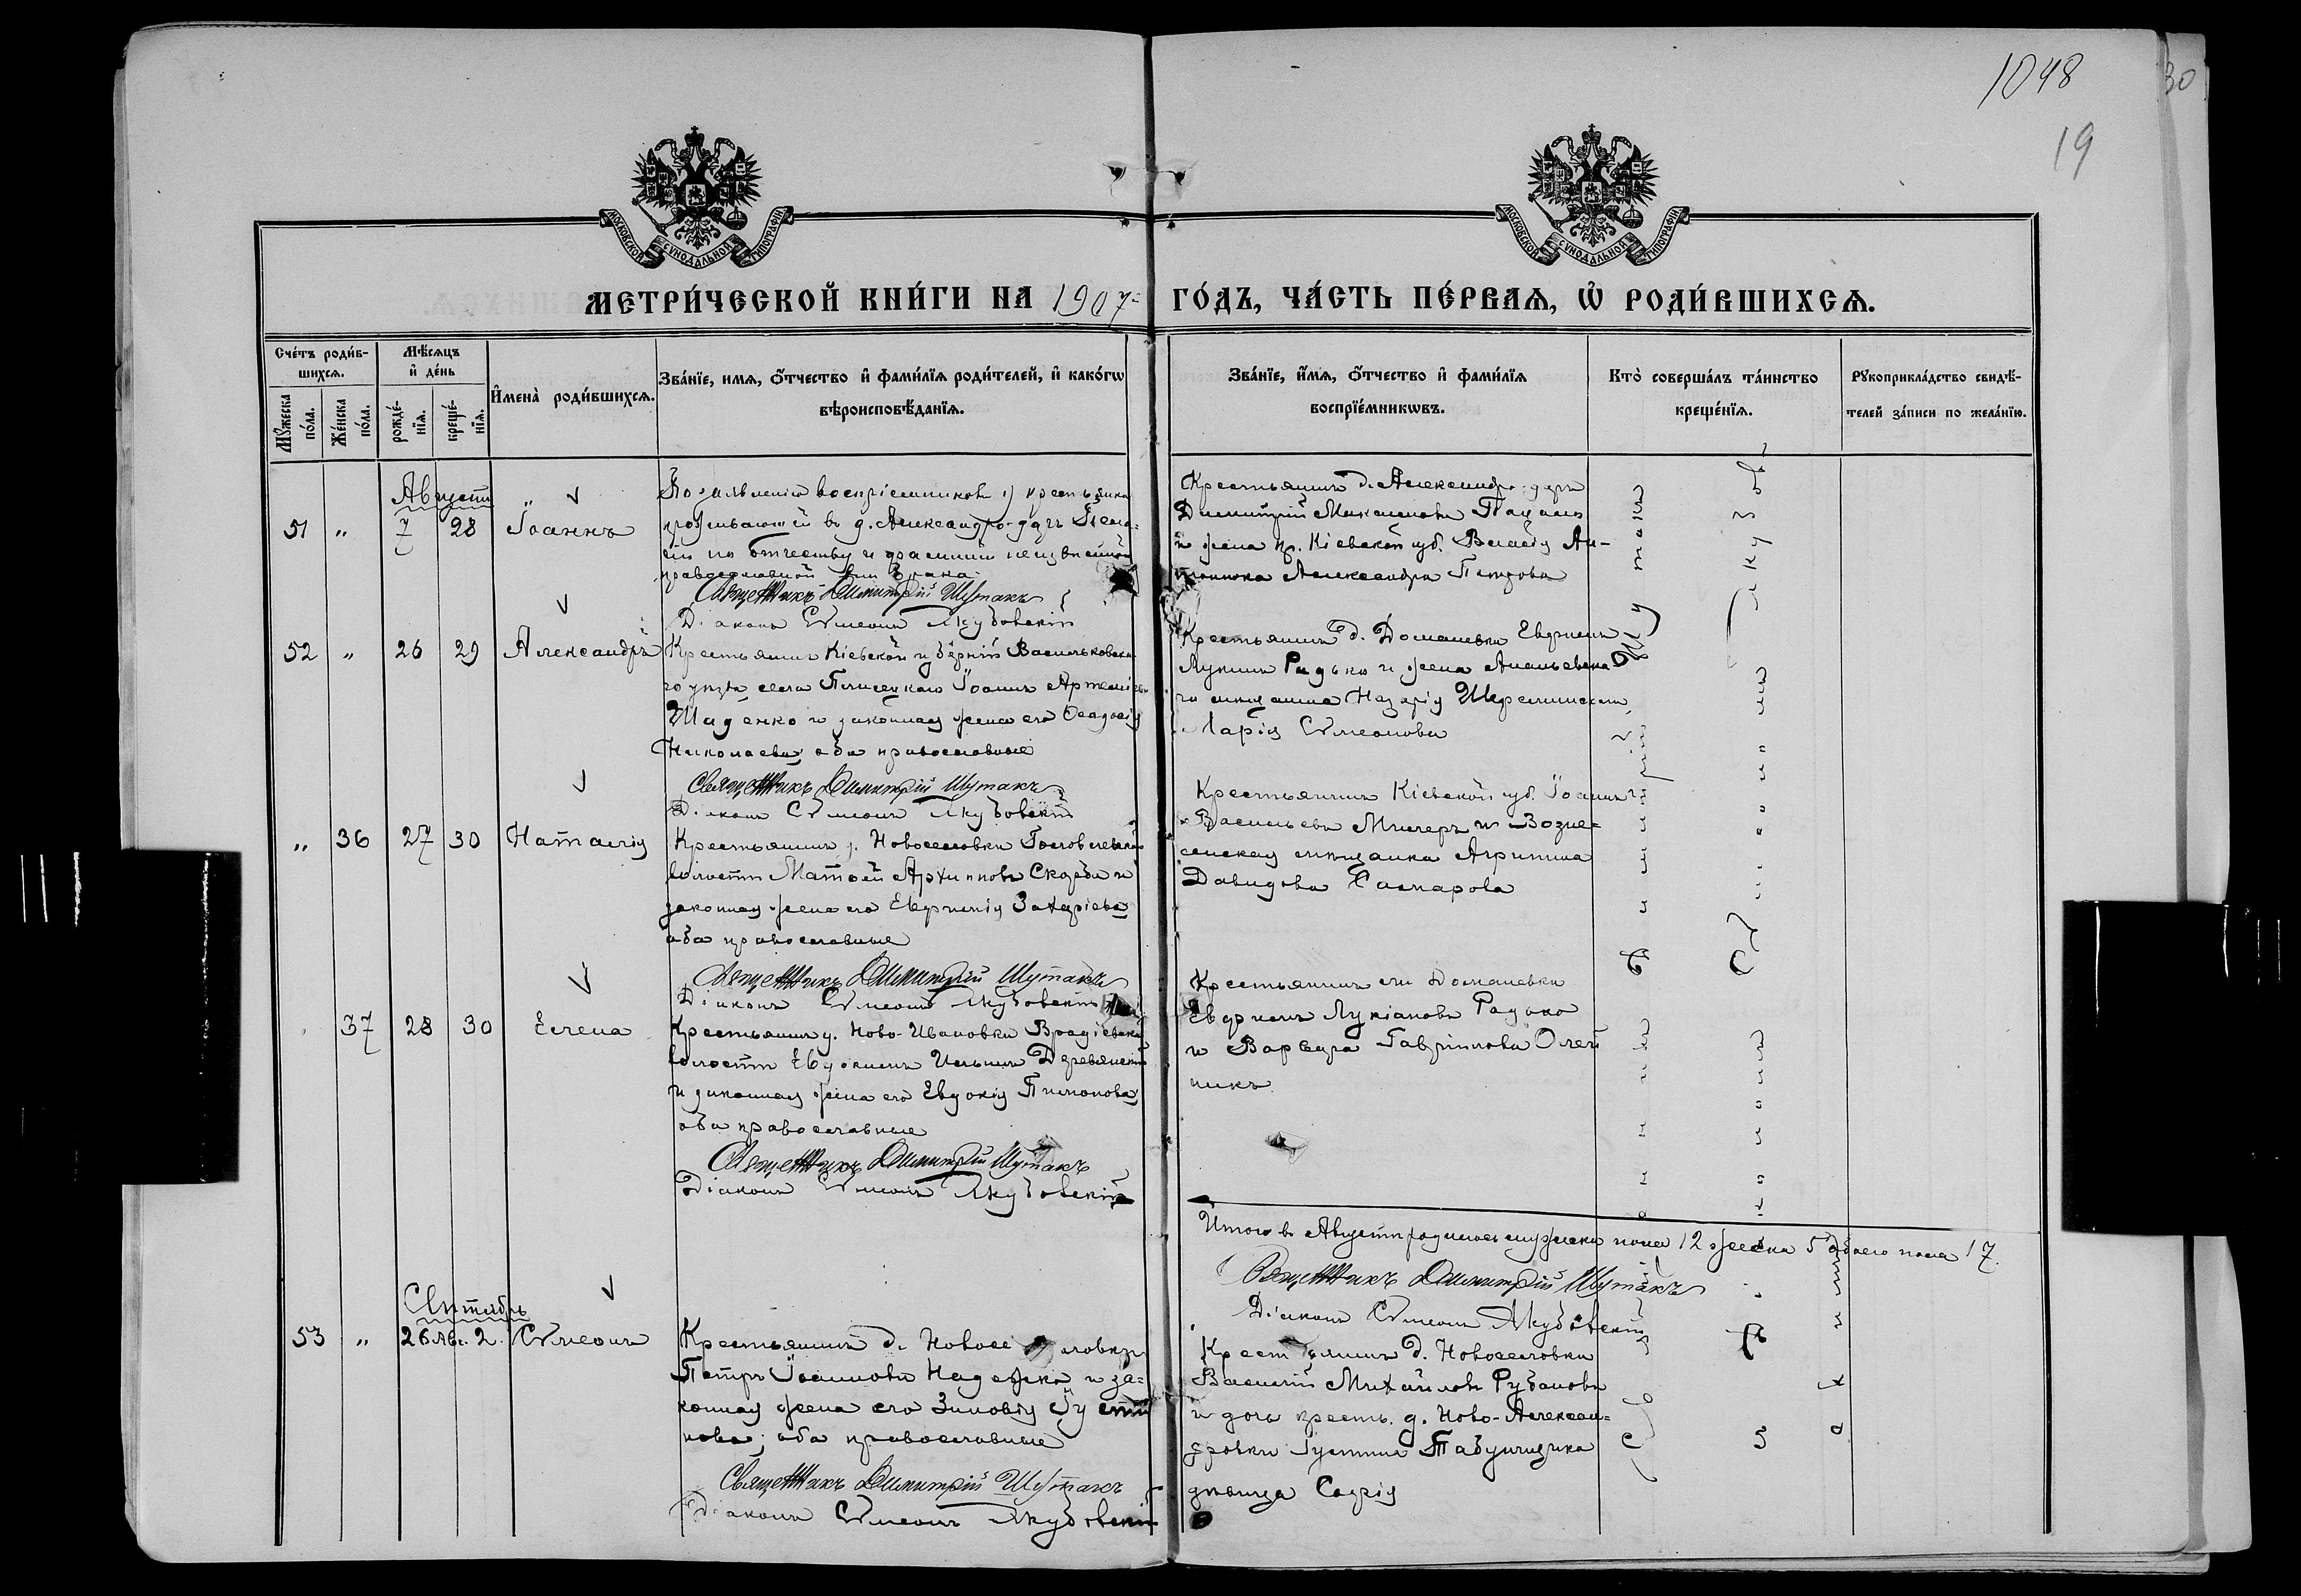 1048
30
19
МОСКОВСКОЙ СУНОДАЛЬНОЙ ТИПОГРАФІИ
МОСКОВСКОЙ СУНОДАЛЬНОЙ ТИПОГРАФІИ
МЕТРИ́ЧЕСКОЙ КНИ́ГИ НА 1907 ГО́ДЪ, ЧА́СТЬ ПЕ́РВАѦ, Ѡ҆ РОДИ́ВШИХСѦ.
Сче́тъ роди́в-
шихсѧ.
Мѣ́сѧцъ
и҆ де́нь
И҆мена̀ роди́вшихсѧ.
Зва́нїе, имѧ, ѻ҆́тчество и҆ фами́лїѧ роди́телей, и҆ како́гѡ
вѣроисповѣ́данїѧ.
Зва́нїе, и҆́мѧ, ѻ҆́тчество и҆ фами́лїѧ
воспрїе́мникѡвъ.
Кто̀ соверша́лъ та́инство
креще́нїѧ.
Рꙋкоприкла́дство свидѣ́-
телей за́писи по жела́нїю.
Мꙋ́жеска
по́ла.
Же́нска
по́ла.
рожде́-
нїѧ.
креще́-
нїѧ.
Августъ
51 " 7 28 Іоаннъ
По заявленію воспріемниковъ крестьянка
проживающей въ д. Александро-даръ
по отчеству и фамиліи неизвѣстной
православной внѣ брака
Священникъ Димитрій Шутакъ
Діаконъ Сѵмеонъ Якубовскій
Крестьянинъ д. Александро-даръ
Димитрій
и жена кр. Кіевской губ. Власія Ан-
тонюка Александра Петрова
52 " 26 29 Александръ
Крестьянинъ Кіевской губерніи Васильковска-
го уѣзда села Плисецкаго Іоаннъ Артеміевъ
Шаденко и законная жена его Ѳеодосія
Николаева, оба православные
Священникъ Димитрій Шутакъ
Діаконъ Сѵмеонъ Якубовскій
Крестьянинъ д. Доманевки Евфимъ
Лукинъ Радько и жена Ананьевска-
го мѣщанина Назарія
Марія Сѵмеонова
" 36 27 30 Наталія
Крестьянинъ д. Новоселовки Головлевской
волости Матѳей Архиповъ Скорба и
законная жена его Евфимія Захаріева
оба православные
Священникъ Димитрій Шутакъ
Діаконъ Сѵмеонъ Якубовскій
Крестьянинъ Кіевской губ. Іоаннъ
Васильевъ Мичеръ и Возне-
сенская мѣщанка Агрипина
Давидова
37 28 30 Елена
Крестьянинъ д. Ново-Ивановки Врадіевской
волости Евдокимъ Ильинъ Деревянскій
и законная жена его Евдокія Пимонова
оба православные
Священникъ Димитрій Шутакъ
Діаконъ Сѵмеонъ Якубовскій
Крестьянинъ Доманевки
Евфимъ Лукіановъ Радько
и Варвара Гавріилова Олей
никъ
Итого въ Августѣ родилось мужска пола 12 женска 5 обоего пола 17.
Священникъ Димитрій Шутакъ
Діаконъ Сѵмеонъ Якубовскій
Сентябрь
53 " 26 Авг. 2. Сѵмеонъ
Крестьянинъ д. Новосе ловки
Петръ Іоанновъ и за-
конная жена его Зиновія Густи
нова; оба православные
Священникъ Димитрій Шутакъ
Діаконъ Сѵмеонъ Якубовскій
Крестьянинъ д. Новоселовки
Василій Михайловъ Рубановъ
и дочь крест. д. Ново-Алексан-
дровки Густина Табунщика
дѣвица Софія